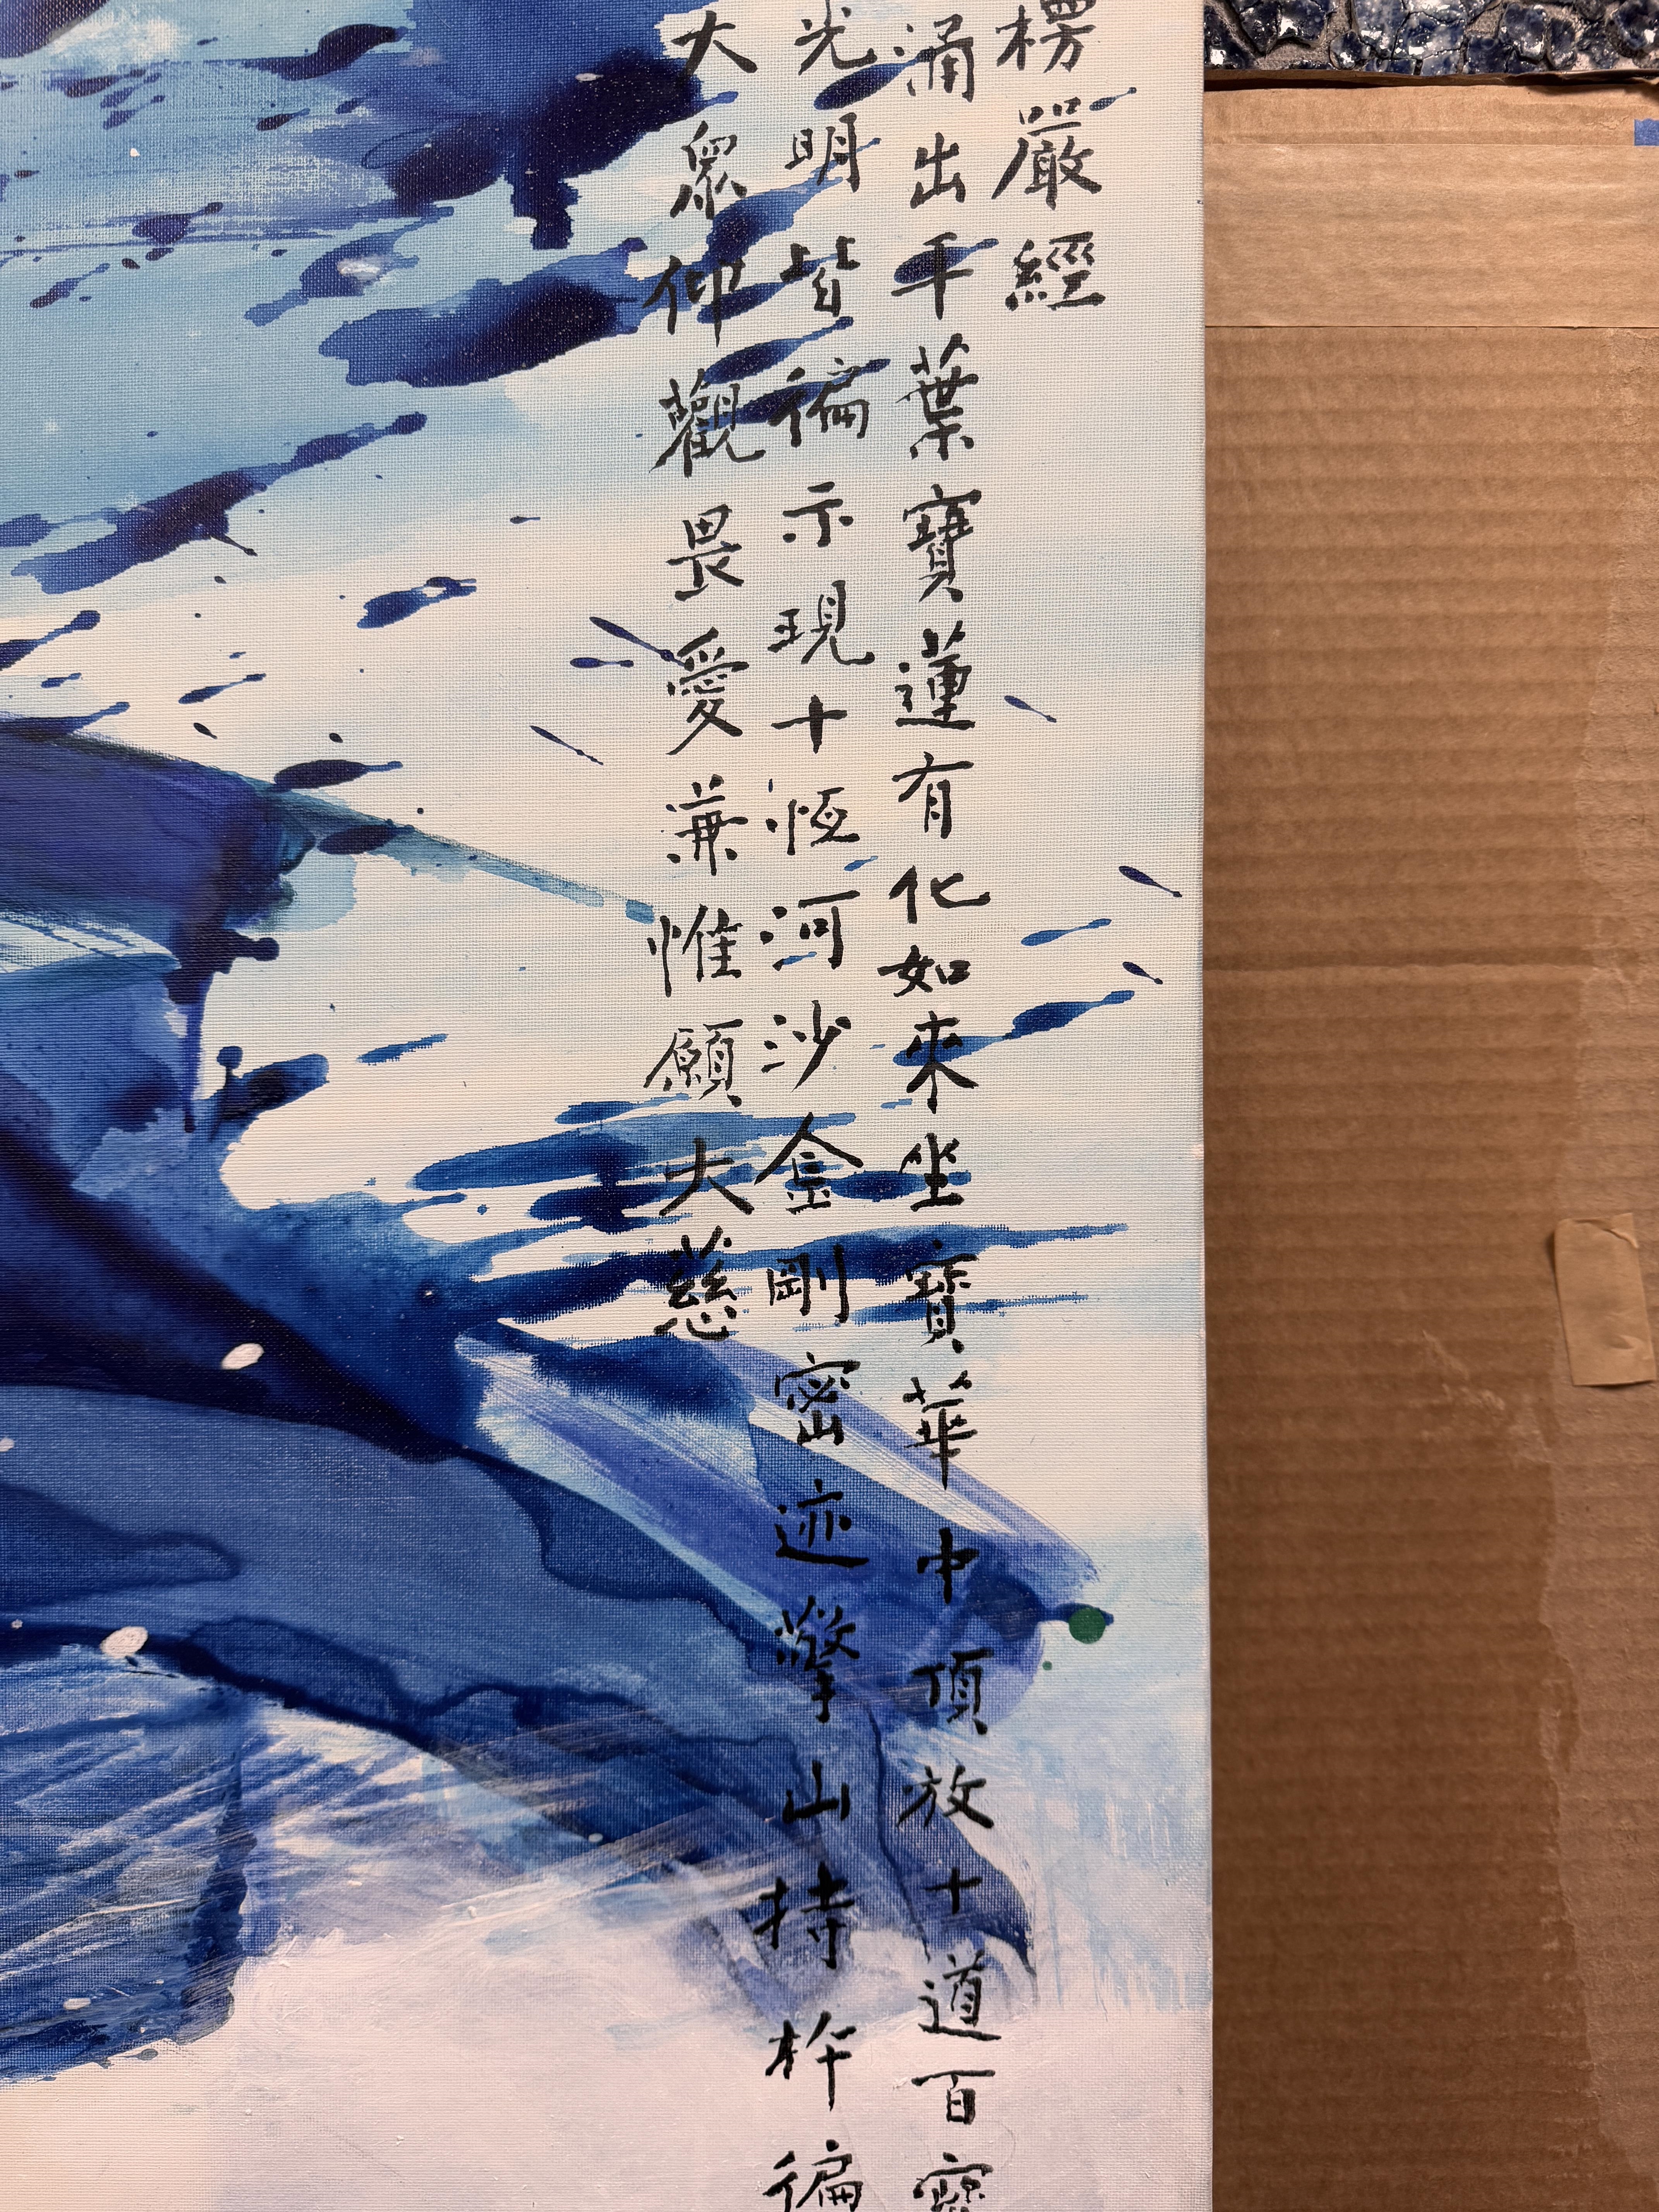 楞嚴經
涌出千葉寶蓮有化如來坐寶華中頂放十道百寶
光明皆徧示現十恆河沙金剛密迹擎山持杵徧
大眾仰觀畏愛兼惟願大慈